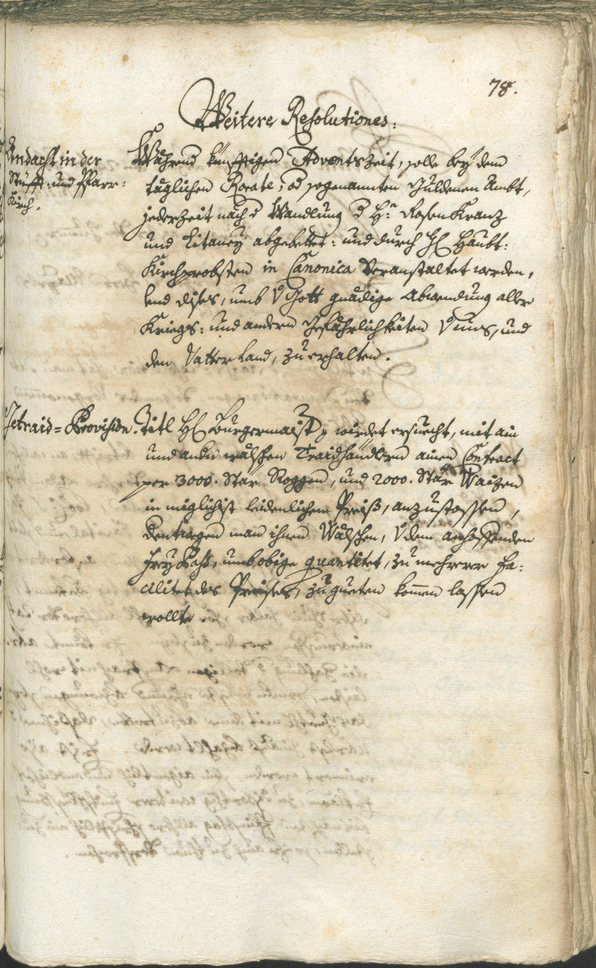 78.
Weitere Resolutiones:
Andacht in der
Stüfft- und Pfarr-
Kirch.
Während künfftigen Adventszeit, solle bey dem
täglichen Rorate, od sogenannten Guldenen Ambt,
jederzeit nach d Wandlung d H: Rosen Krantz
und Litaney abgebettet: und durch H Haubt:
Kirchprobsten in Canonica veranstaltet werden,
und dises, umb v Gott gnädige Abwendung aller
Kriegs: und andern Gefährlichkeiten v uns, und
den Vatterland, zu erhalten.
Getraid-Provision.
Titl H Burgermaister wirdet ersuecht, mit ain
und andern wälschen Traidhandlern ainen Contract
per 3000. Star Roggen, und 2000. Star Waizen
in möglichst leidenlichen Preiß, anzustossen,
dentgegen man ihnen Wälschen, v dem anhoffenden
frey Paß, umb obige quantitet, zu mehrerer fa-
cilitet des Preises, zu gueten komen lassen
wollte.